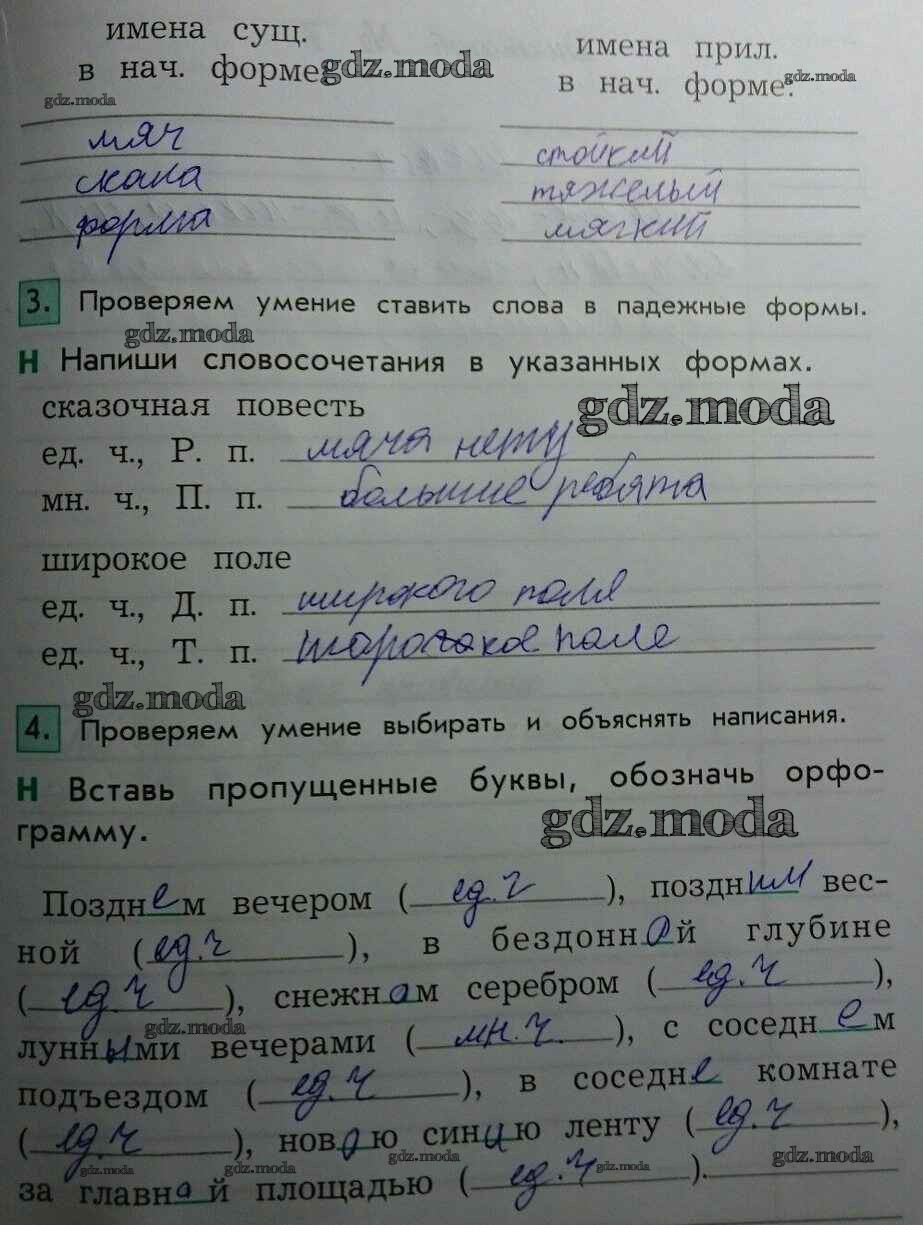 имена сущ.
в нач. форме gdz.moda
имена прил.
в нач. форме:
gdz.moda
gdz.moda
мяч
скала
форма
стойкий
тяжелый
мягкий
3. Проверяем умение ставить слова в падежные формы.
gdz.moda
Н Напиши словосочетания в указанных формах.
сказочная повесть gdz.moda
ед. ч., Р. п. мяча нету
мн. ч., П. п. большие ребята
широкое поле
ед. ч., Д. п. широкого поля
ед. ч., Т. п. поле
gdz.moda
4. Проверяем умение выбирать и объяснять написания.
Н Вставь пропущенные буквы, обозначь орфо-
грамму. gdz.moda
Поздн ем вечером ( ед.ч ), поздним вес-
ной ( ед.ч ), в бездонной глубине
( ед.ч ), снежном серебром ( ед.ч ),
gdz.moda
лунными вечерами ( мн.ч. ), с соседнем
подъездом ( ед.ч ), в соседне комнате
( ед.ч ), новою синцю ленту ( ед.ч ),
gdz.moda gdz.moda gdz.moda gdz.moda gdz.moda
за главнай площадью ( ед.ч ).